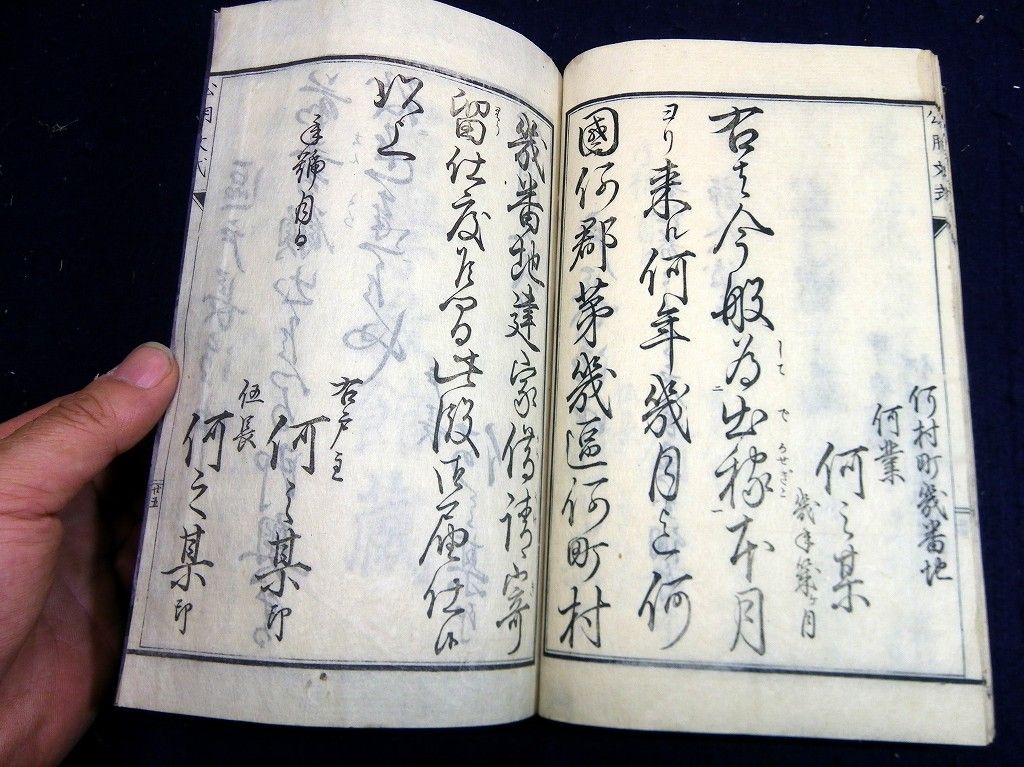 公用文式
何村町幾番地
何業
何之某
幾年幾ヶ月
右者今般為出稼本月
ヨリ来ル何年幾月迄何
國何郡第幾區何町村
幾番地建家借請寄
留仕度候間此段御届仕候
以上
年號月日
右戸主
何之某印
伍長
何之某印
公用文式
廿五